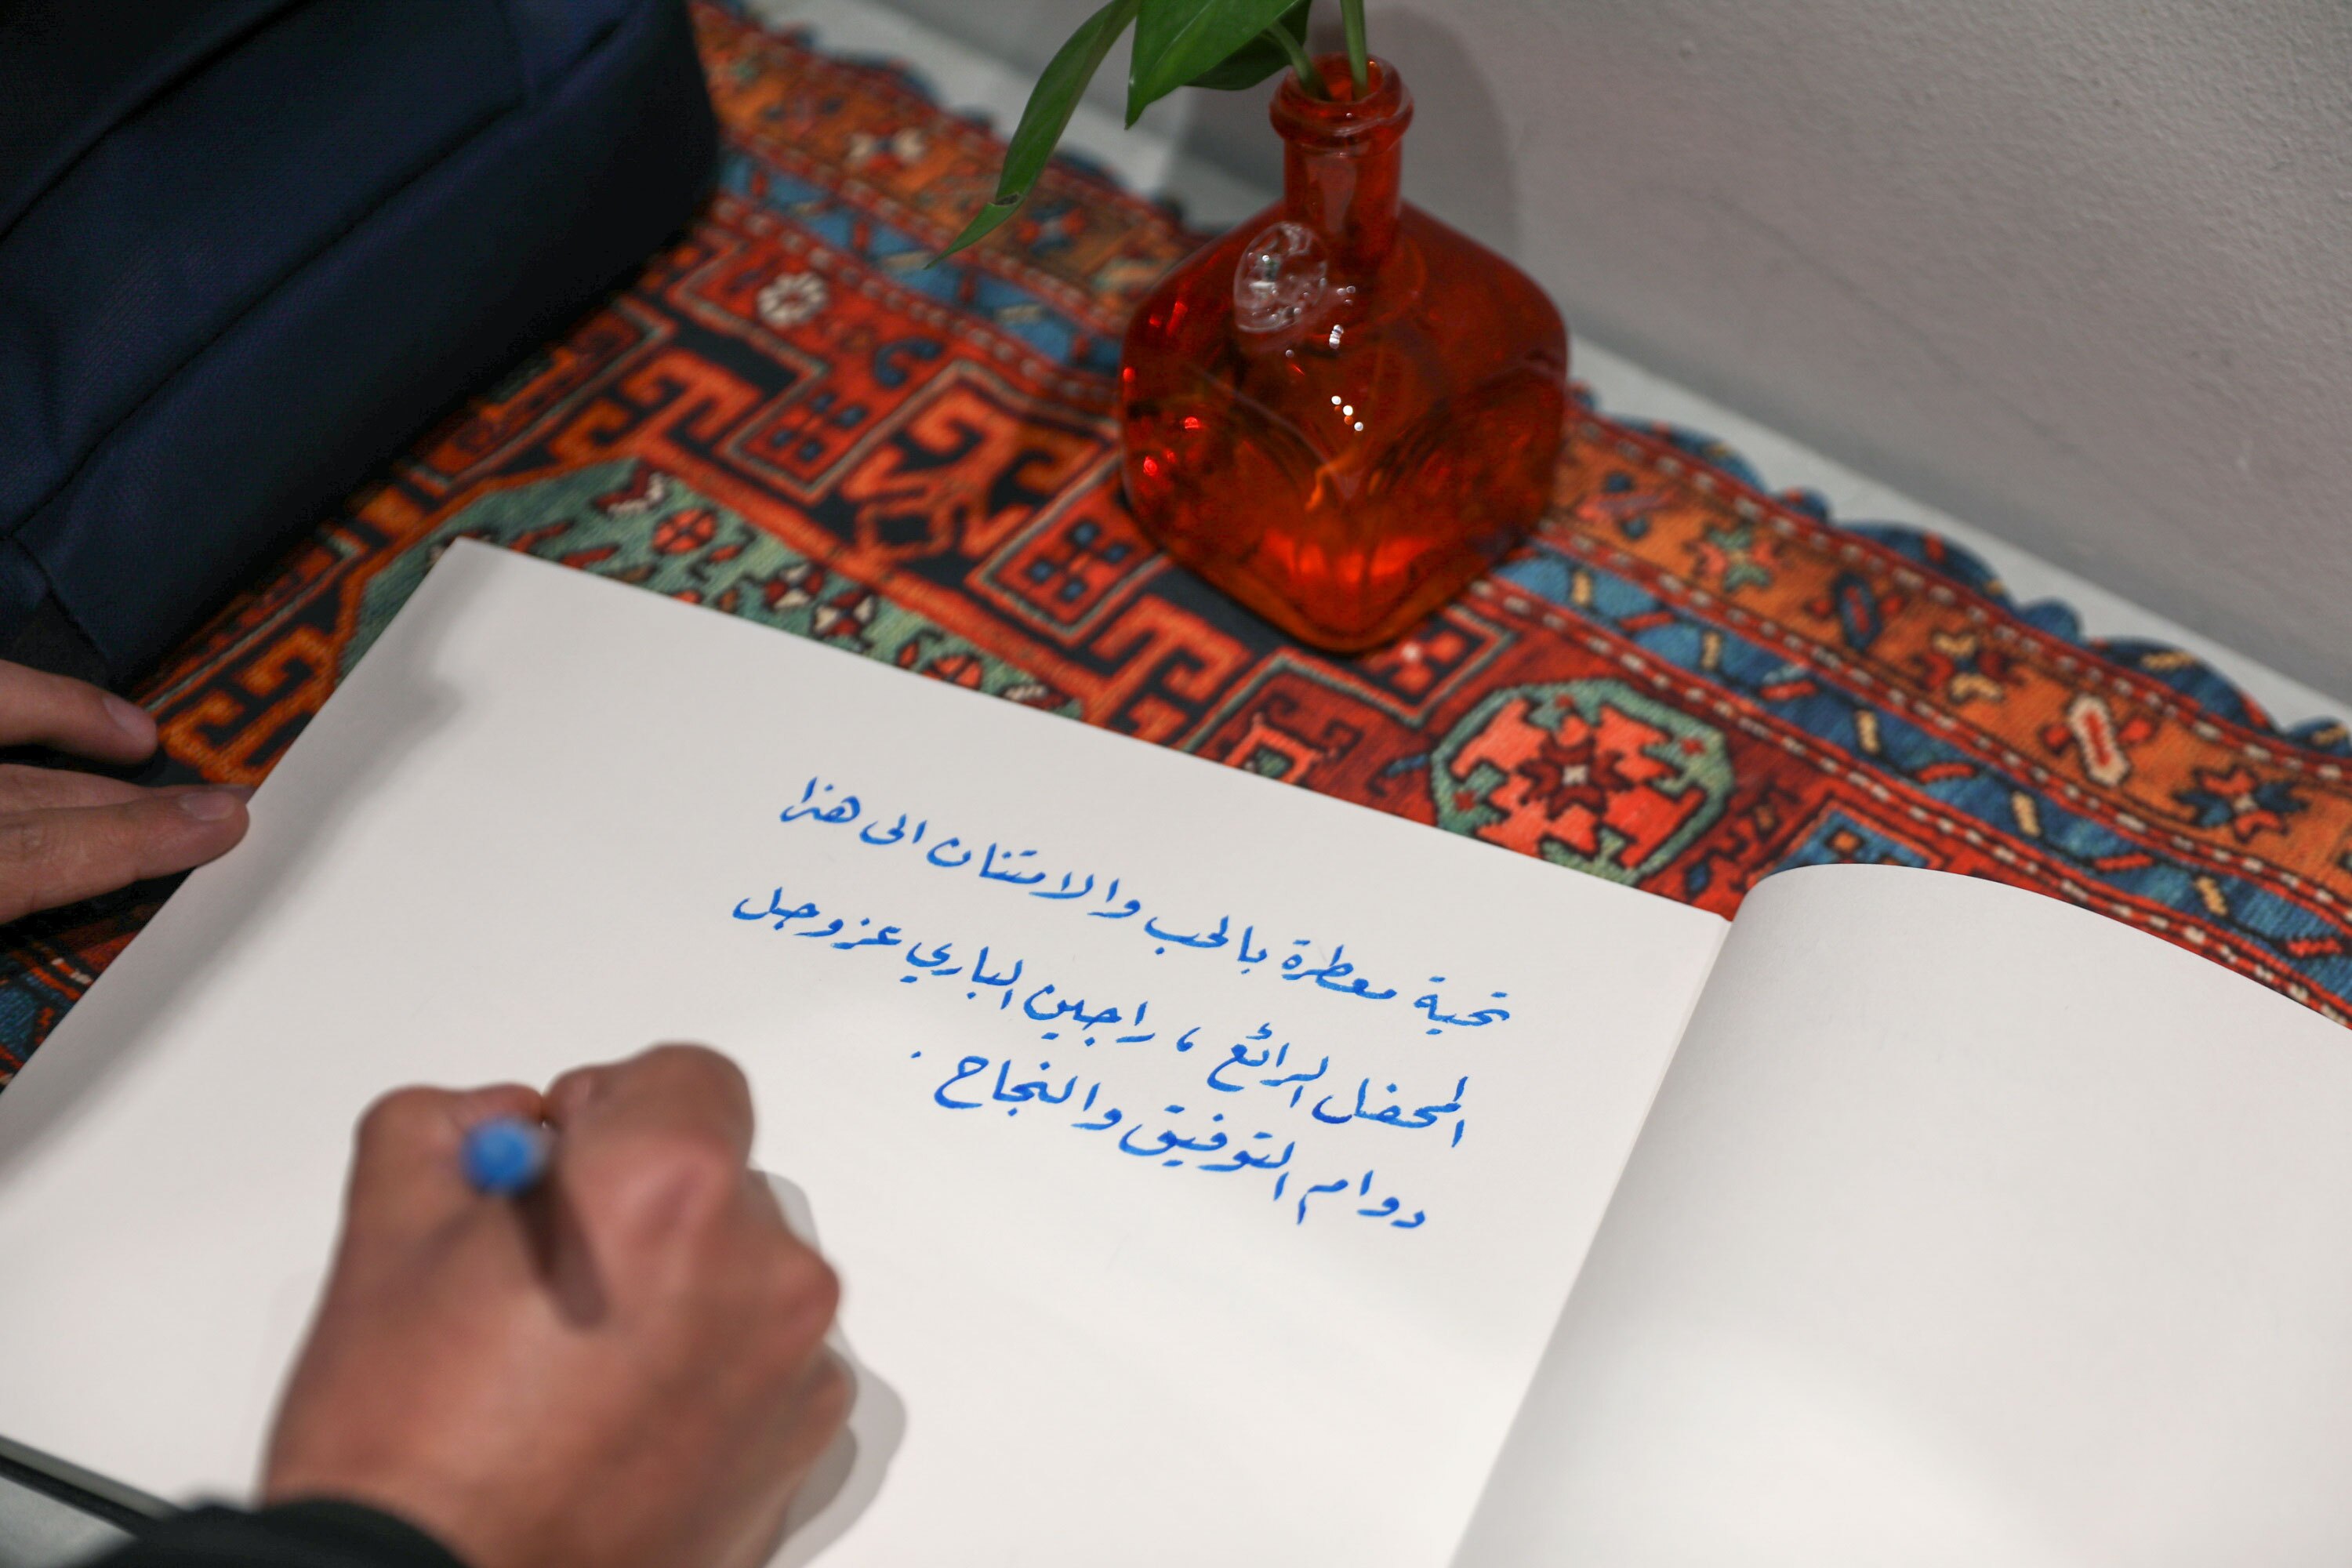 تحية معطرة بالحب والامتنان الى هذا
المحفل الرائع ، راجين الباري عز وجل
دوام التوفيق والنجاح .